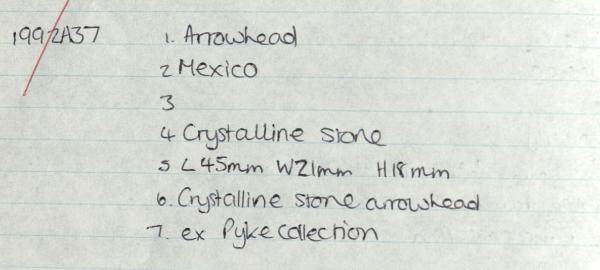 1992A37 1. Arrowhead
2 Mexico
3
4 Crystalline stone
5 L45mm W21mm H18mm
6. Crystalline stone arrowhead
7. ex Pyke collection